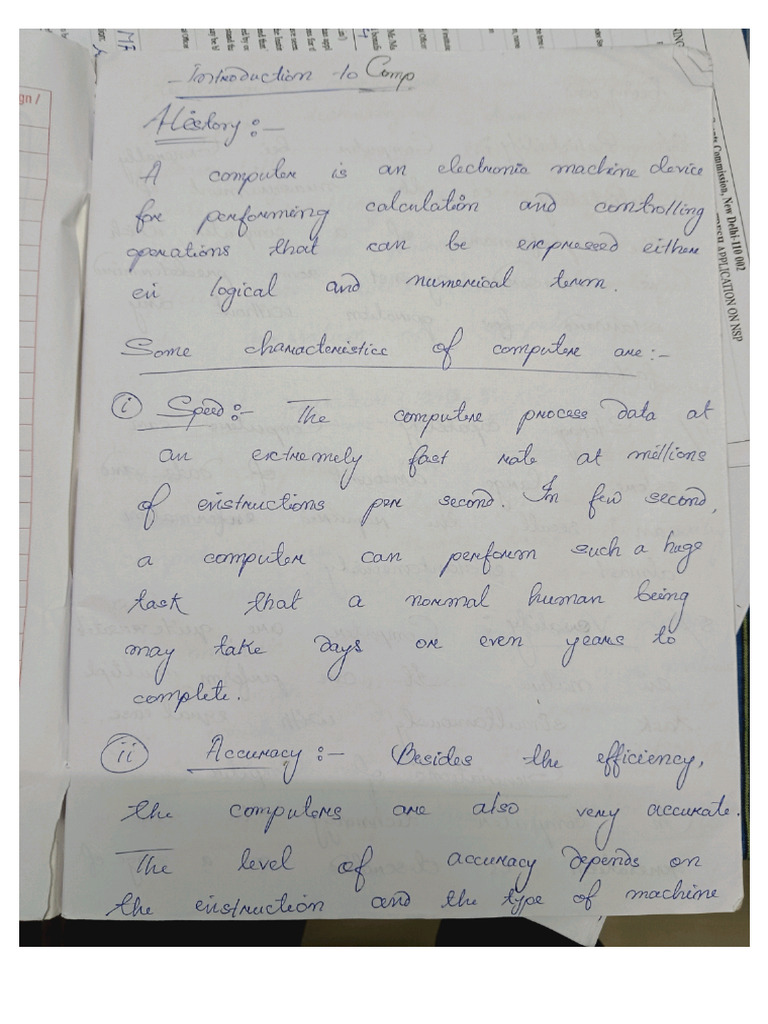 Introduction to Comp
History :-
A computer is an electronic machine device
for performing calculation and controlling
operations that can be expressed either
in logical and numerical term.
Some characteristics of computer are :-
i) Speed :- The computer process data at
an extremely fast rate at millions
of instructions per second. In few second,
a computer can perform such a huge
task that a normal human being
may take days or even years to
complete.
ii) Accuracy :- Besides the efficiency,
the computers are also very accurate.
The level of accuracy depends on
the instruction and the type of machine
Commission, New Delhi-110 002
APPLICATION ON NSP
gn /
MA